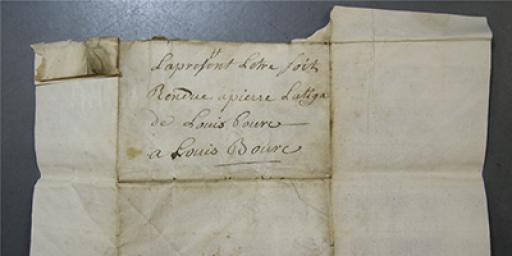 Lapresent Letre soit
Rendue a pierre
de Louis Bourc
a Louis Bourc